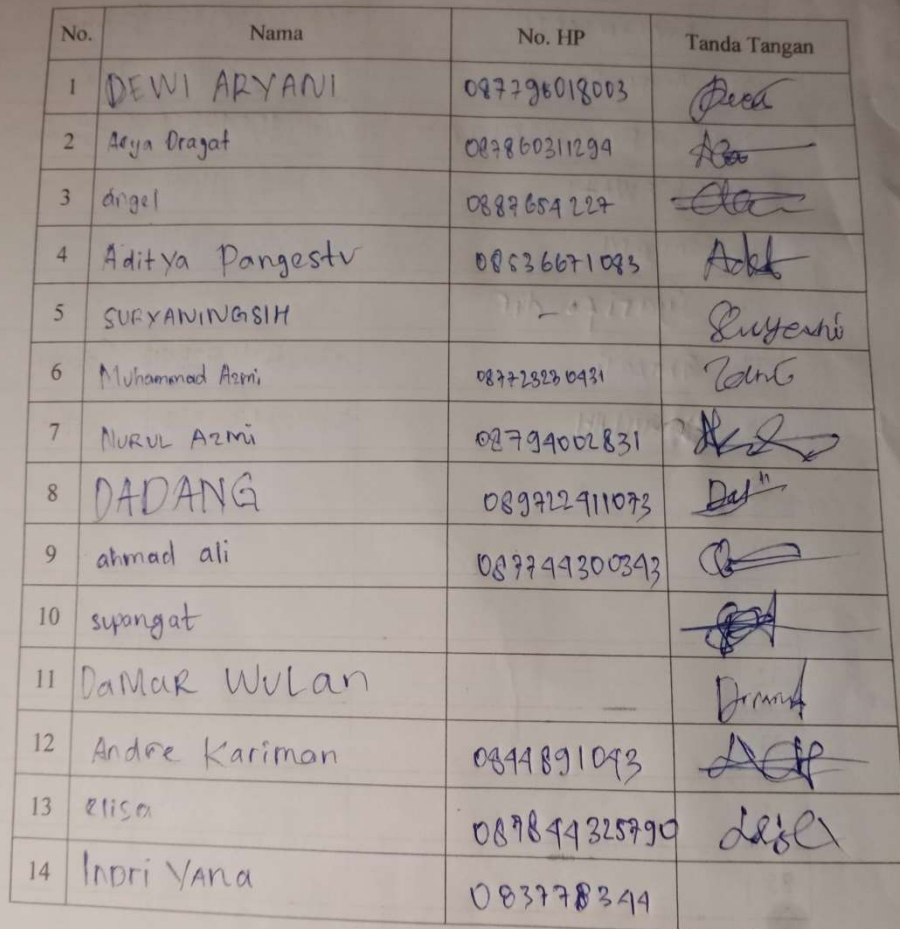 No. Nama No. HP Tanda Tangan
1 DEWI ARYANI 087796018003
2 Arya Dragat 087860311294
3 angel 0887654227
4 Aditya Pangestu 08536671083
5 SURYANINGSIH -
6 Muhammad Azmi 0877232310431
7 NURUL AZMi 08794002831
8 DADANG 089722911073
9 ahmad ali 087744300343
10 supangat
11 DaMaR WuLan
12 Andre Kariman 0844891043
13 elisa 087844325790
14 InDri YAna 083778344